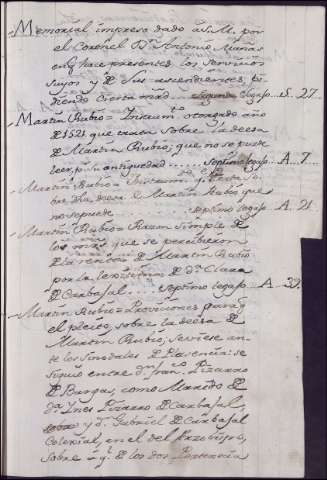 Memorial impreso dado a S.M. por
el Coronel Dn. Antonio
en q. hace presentes los servicios
suyos y de sus ascendientes, pi
diendo cierta md segundo legajo S. 27.
Martin Rubio = Instrum.to otorgado año
de 1521 que trata sobre la deesa
de Martin Rubio, que no se puede
leer, p. su antiguedad septimo legajo A. 7.
Martin Rubio = q. trata so
bre dha deesa de Martin Rubio que
no se puede septimo legajo A. 21.
Martin Rubio = Razon simple de
los mrs. que se percibieron
de renta de Martin Rubio
por la de Da. Clara
de Carbajal septimo legajo A. 32.
Martin Rubio = Provisiones para q.
el pleito, sobre la deesa de
Martin Rubio, se viese an
te los Sinodales de Plasencia: se
siguio entre dn. Fran.co Pizarro
de Bargas, como Marido de
da. Ines Pizarro de Carbajal,
y d. Gabriel de Carbajal
Colegial, en el del Arzobispo,
sobre a q. de los dos Pertenecia